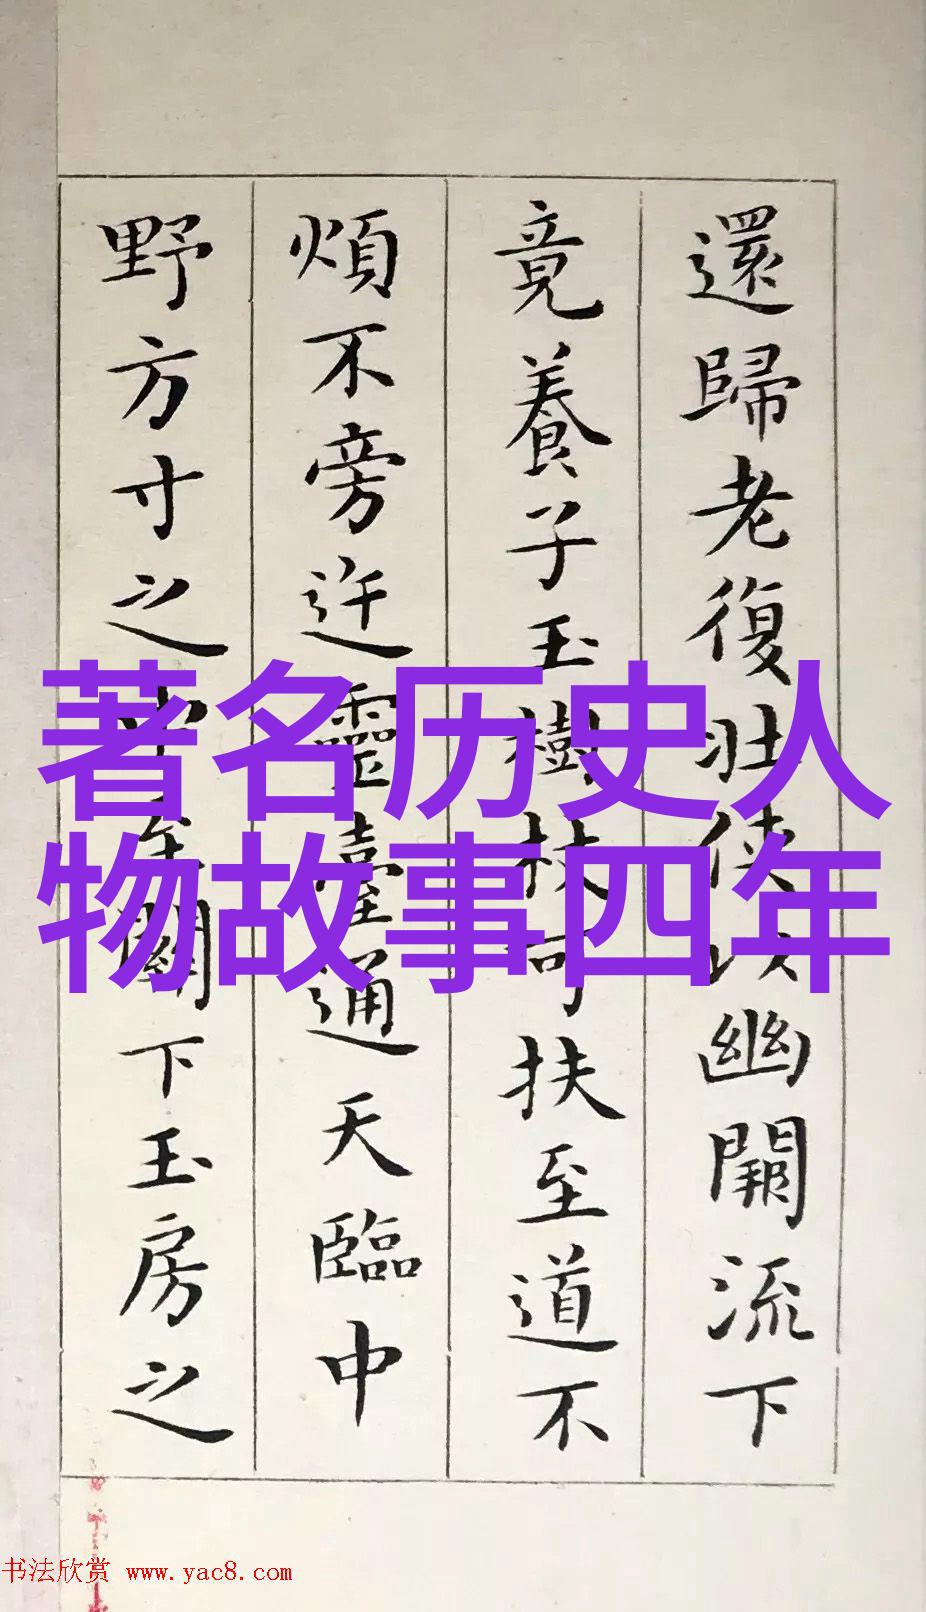 還歸老復壯侠以幽闕流下
竟養子玉樹枝可扶至道不
煩不旁迕靈臺通天臨中
野方寸之中至關下玉房之
著名历史人
物故事四年
书法欣赏 www.yac8.com